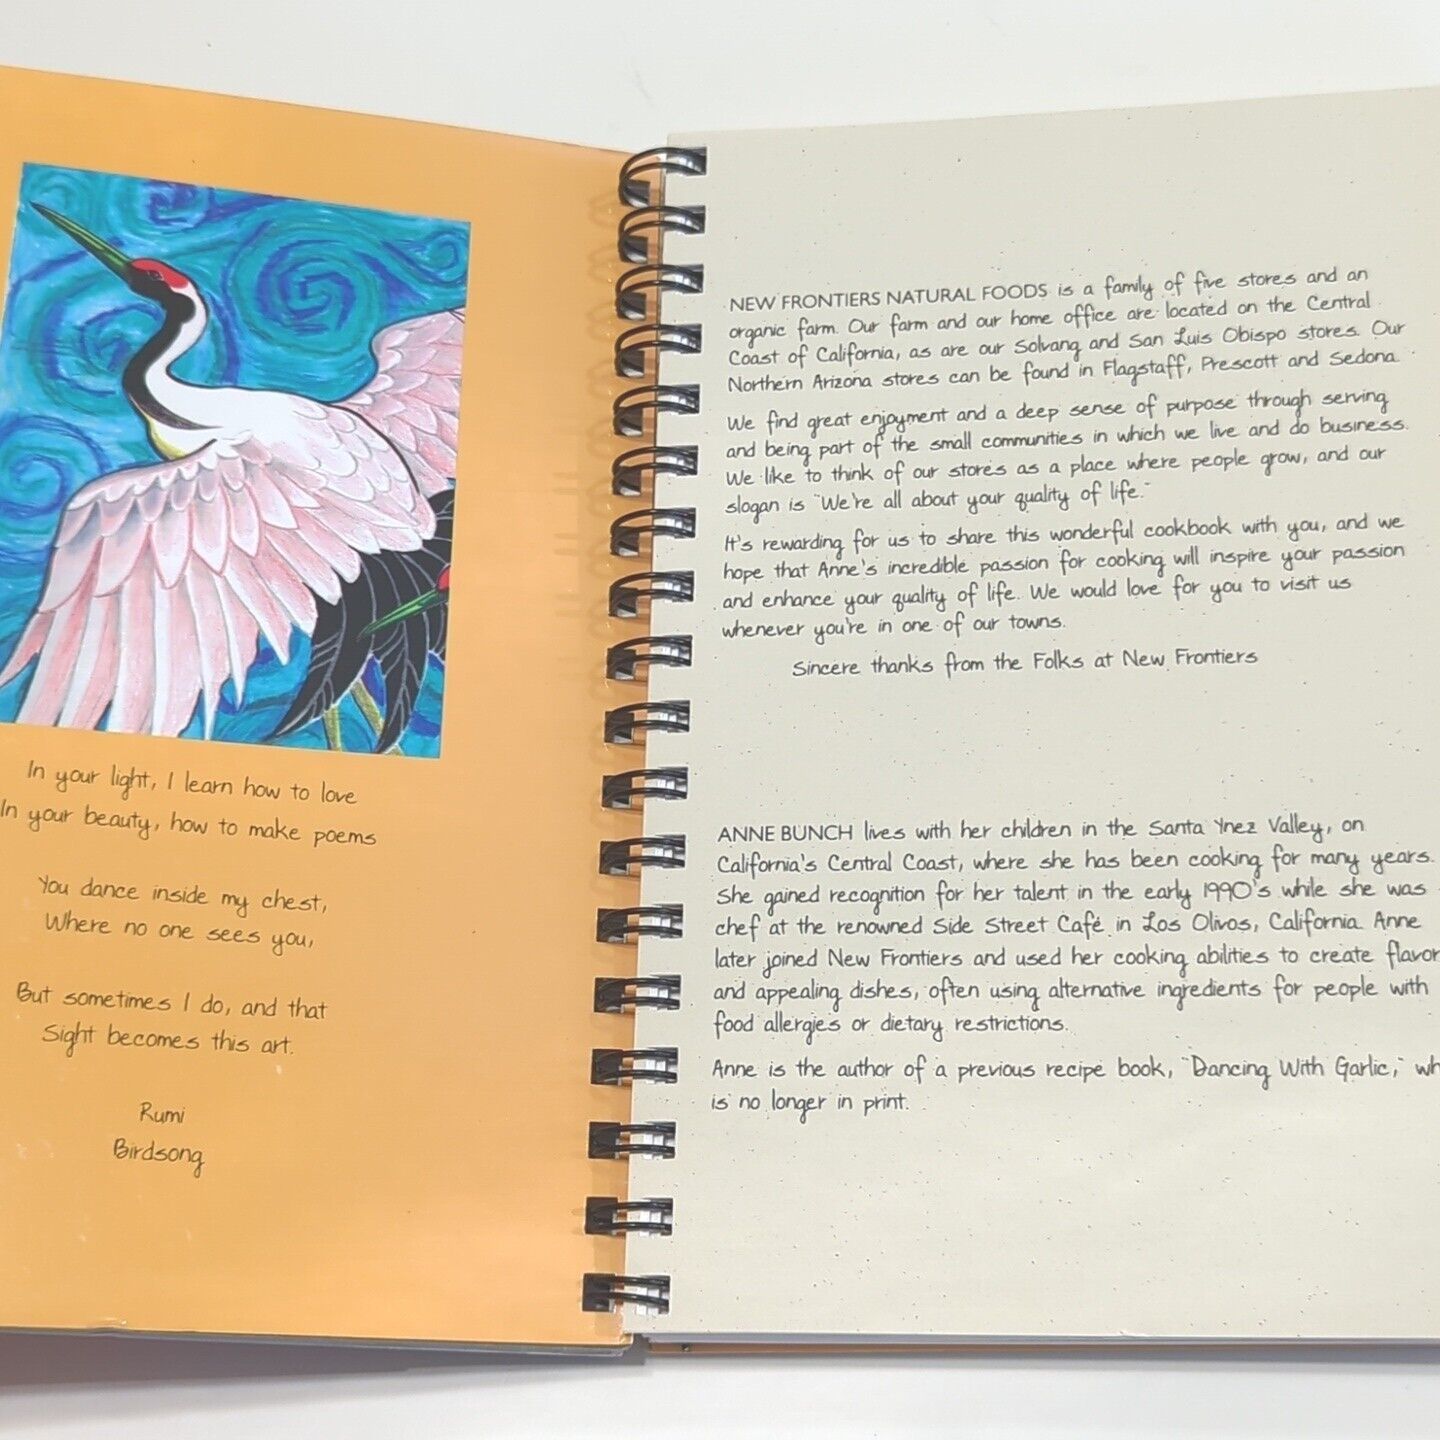 In your light, I learn how to love
In your beauty, how to make poems
You dance inside my chest,
Where no one sees you,
But sometimes I do, and that
Sight becomes this art.
Rumi
Birdsong
NEW FRONTIERS NATURAL FOODS is a family of five stores and an
organic farm. Our farm and our home office are located on the Central
Coast of California, as are our Solvang and San Luis Obispo stores. Our
Northern Arizona stores can be found in Flagstaff, Prescott and Sedona.
We find great enjoyment and a deep sense of purpose through serving
and being part of the small communities in which we live and do business.
We like to think of our stores as a place where people grow, and our
slogan is "We're all about your quality of life."
It's rewarding for us to share this wonderful cookbook with you, and we
hope that Anne's incredible passion for cooking will inspire your passion
and enhance your quality of life. We would love for you to visit us
whenever you're in one of our towns.
Sincere thanks from the Folks at New Frontiers
ANNE BUNCH lives with her children in the Santa Ynez Valley, on
California's Central Coast, where she has been cooking for many years.
She gained recognition for her talent in the early 1990's while she was
chef at the renowned Side Street Café in Los Olivos, California. Anne
later joined New Frontiers and used her cooking abilities to create flavor
and appealing dishes, often using alternative ingredients for people with
food allergies or dietary restrictions.
Anne is the author of a previous recipe book, "Dancing With Garlic," wh
is no longer in print.